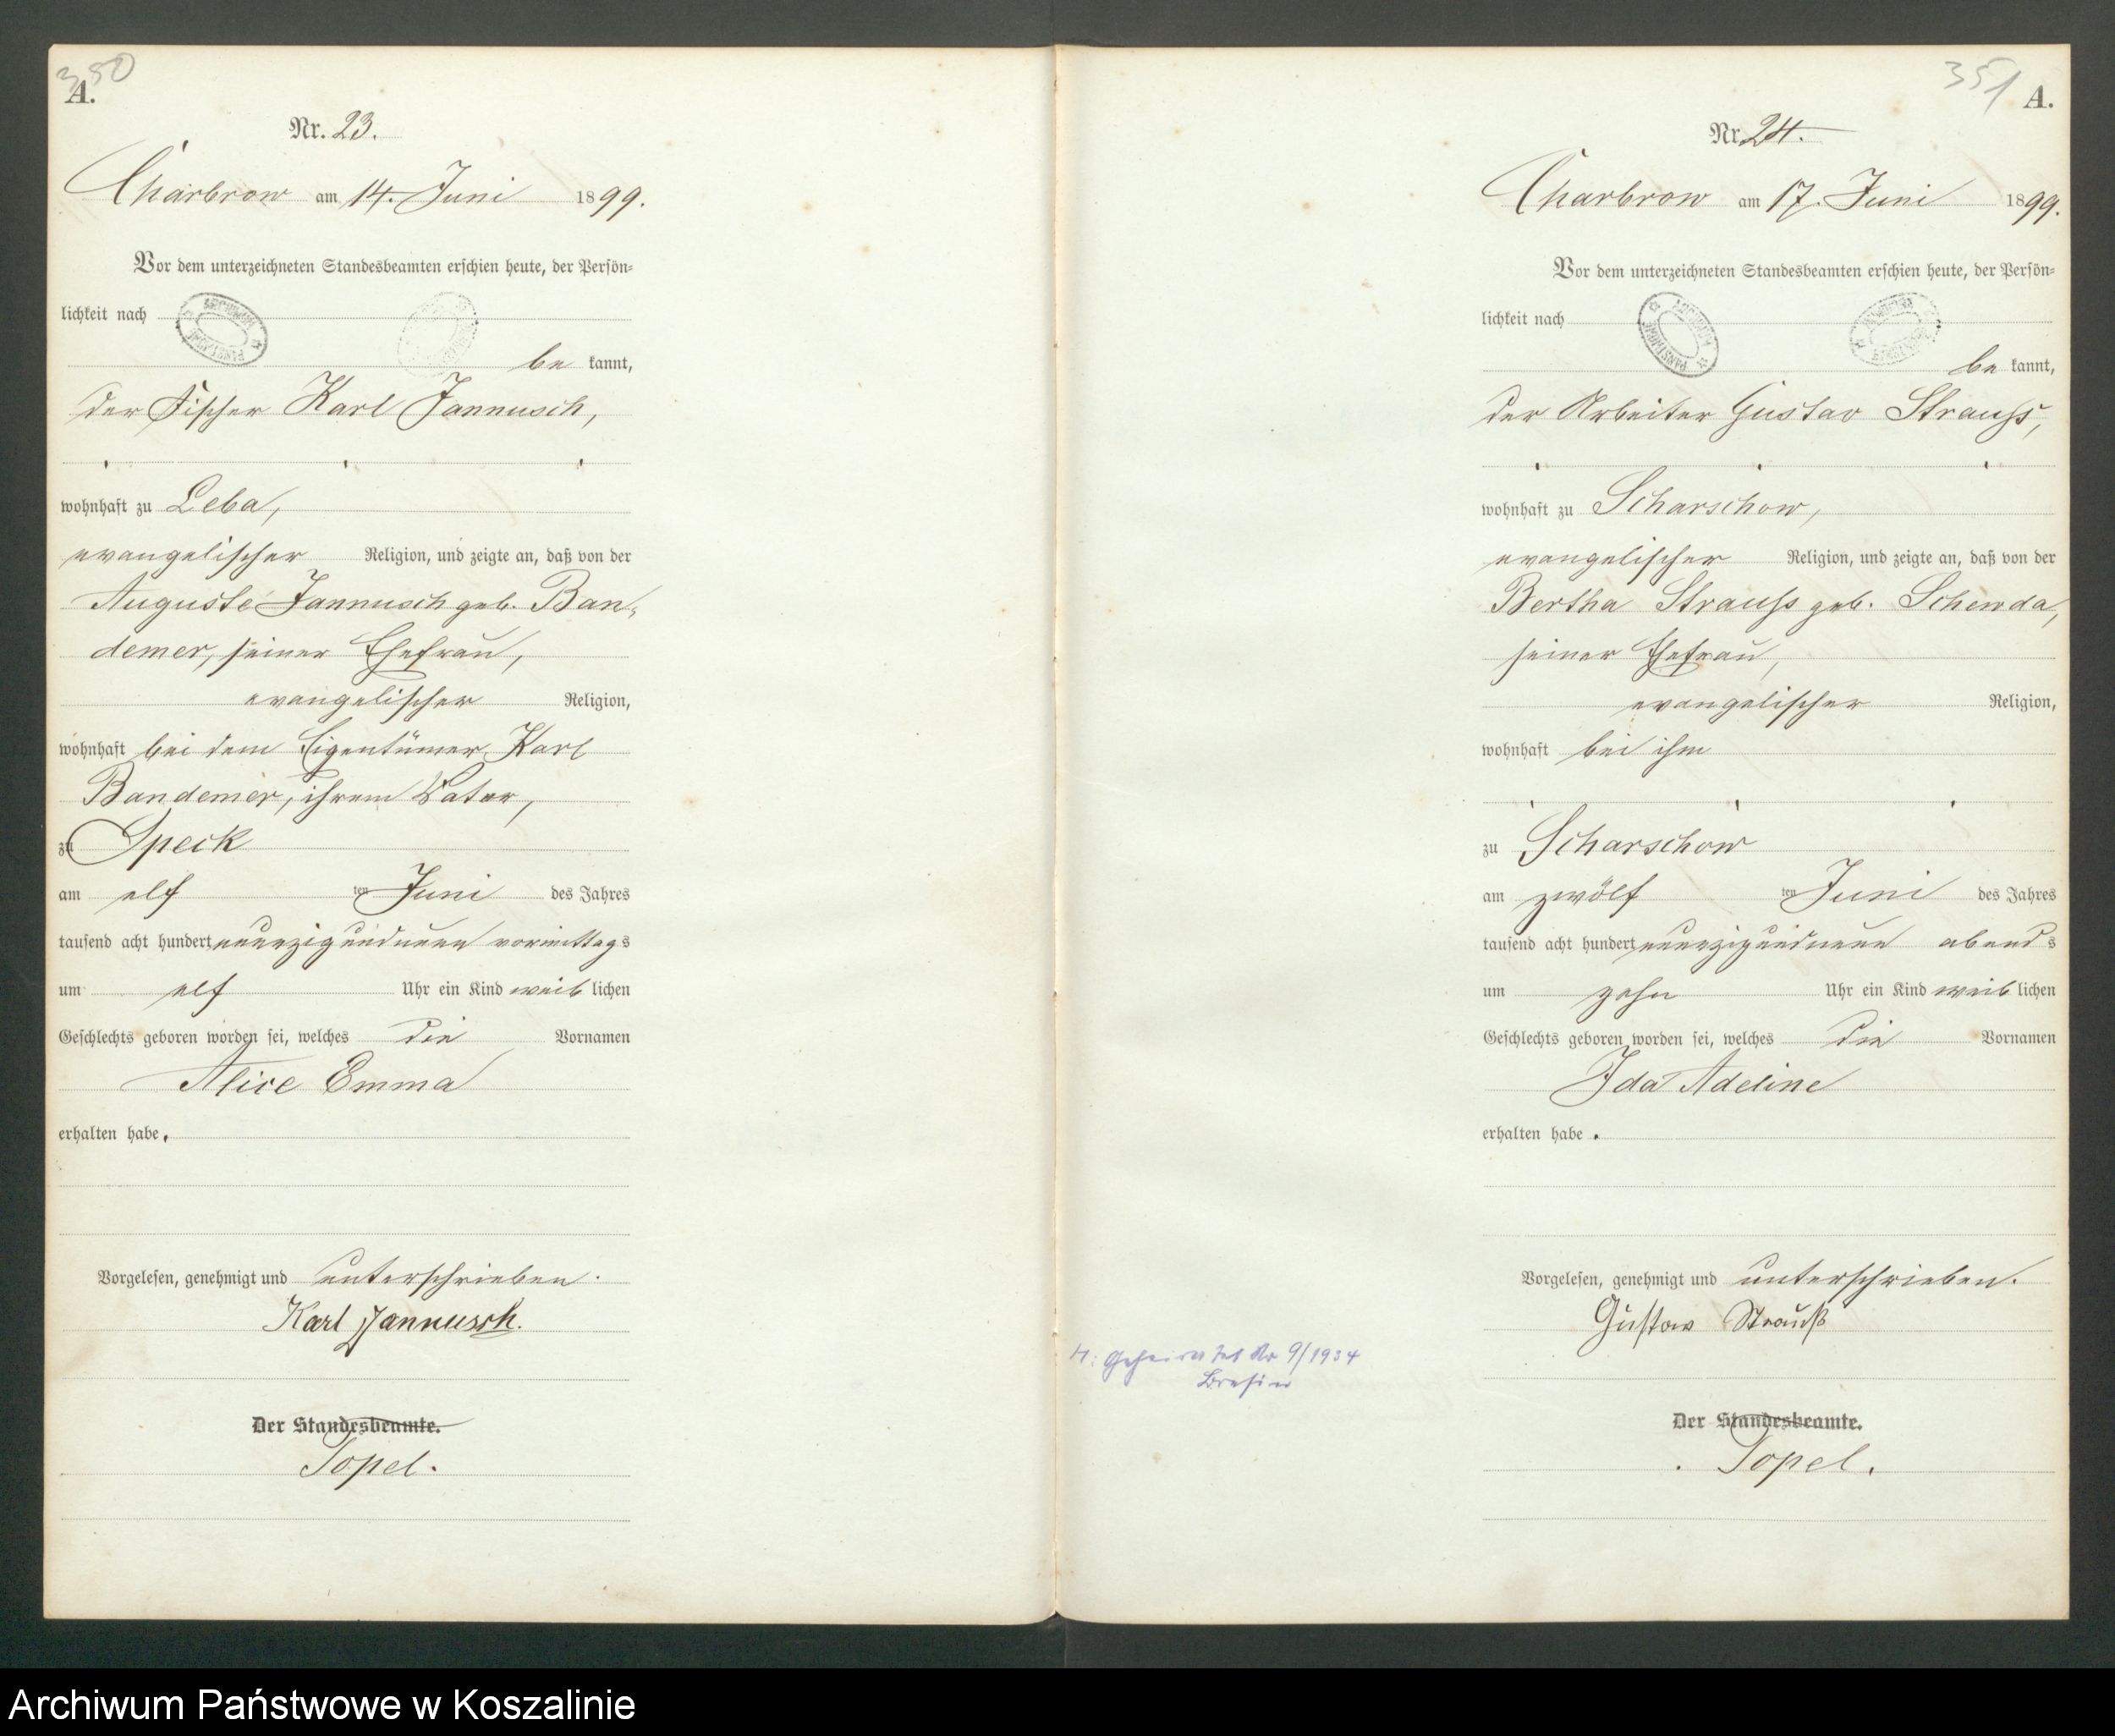 350
A.
Nr. 23.
Charbrow am 14. Juni 1899.
Vor dem unterzeichneten Standesbeamten erschien heute, der Persön-
lichkeit nach
be kannt,
der Fischer Karl Jannusch,
wohnhaft zu Leba,
evangelischer Religion, und zeigte an, daß von der
Auguste Jannusch geb. Ban-
demer, seiner Ehefrau,
evangelischer Religion,
wohnhaft bei dem Eigentümer Karl
Bandemer, ihrem Vater,
zu Speck
am elf ten Juni des Jahres
tausend acht hundert neunzig und neun vormittags
um elf Uhr ein Kind weib lichen
Geschlechts geboren worden sei, welches die Vornamen
Alice Emma
erhalten habe.
Vorgelesen, genehmigt und unterschrieben.
Karl Jannusch.
Der Standesbeamte.
Topel.
351
A.
Nr. 24.
Charbrow am 17. Juni 1899.
Vor dem unterzeichneten Standesbeamten erschien heute, der Persön-
lichkeit nach
be kannt,
der Arbeiter Gustav Strauß,
wohnhaft zu Scharschow,
evangelischer Religion, und zeigte an, daß von der
Bertha Strauß geb. Schewda,
seiner Ehefrau,
evangelischer Religion,
wohnhaft bei ihm
zu Scharschow
am zwölf ten Juni des Jahres
tausend acht hundert neunzig und neun abends
um zehn Uhr ein Kind weib lichen
Geschlechts geboren worden sei, welches die Vornamen
Ida Adeline
erhalten habe.
Vorgelesen, genehmigt und unterschrieben.
Gustav Strauß
H: Geheiratet Nr 9/1934
Der Standesbeamte.
Topel.
Archiwum Państwowe w Koszalinie